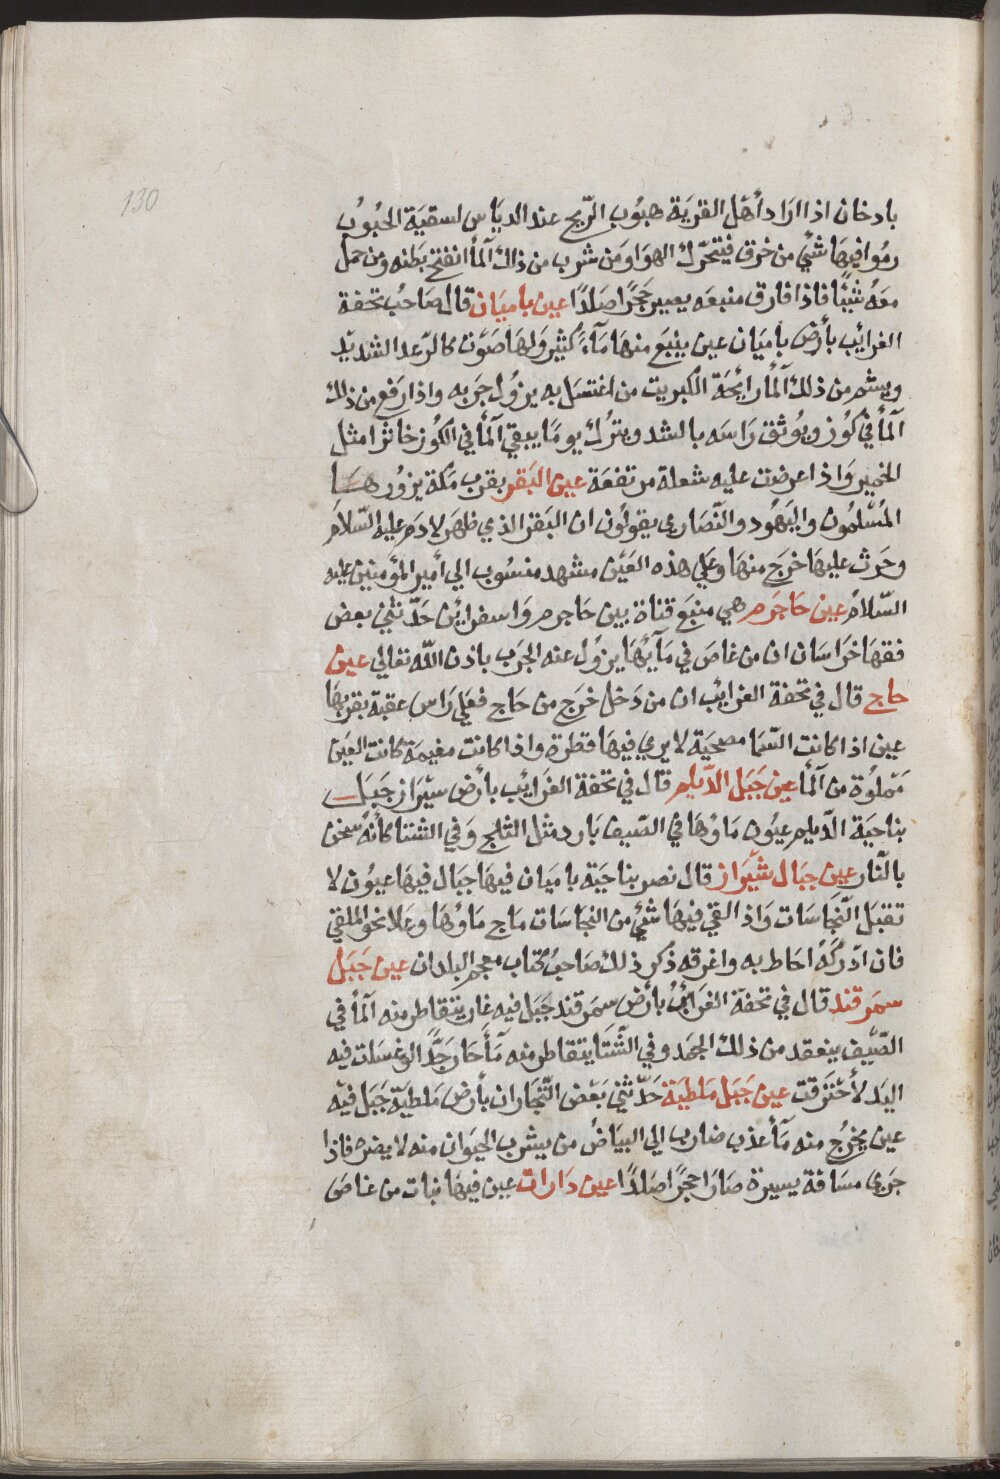 130
بادخان اذا اراد أهل القرية هبوب الريح عند الدياس لسقية الحبوب
رموا فيها شئ من خرق فيتحرك الهوا ومن شرب من ذلك المأ انفتح بطنه ومن حمل
معه شيئا فاذا فارق منبعه يصير حجرا صلدا عين باميان قال صاحب تحفة
الغرائب بأرض باميان عين ينبع منها مآء كثير ولها صوت كالرعد الشديد
ويشم من ذلك المأ رائحة الكبريت من اغتسل به يزول جربه واذا رفع من ذلك
المأ في كوز ويوثق راسه بالشد ويترك يوما يبقي المأ في الكوز خاثرا مثل
الخمير واذا عرضت عليه شعلة مرتفعة عين البقر بقرب مكة يزورها
المسلمون واليهود والنصارى يقولون ان البقر الذي ظهر لادم عليه السلام
وحرث عليها خرج منها وعلي هذه العين مشهد منسوب الي أمير المؤمنين عليه
السلام عين حاجرم هي منبع قناة بين حاجرم واسفرائن حدثني بعض
فقها خراسان ان من غاص في مآئها يزول عنه الجرب باذن الله تعالي عين
حاج قال في تحفة الغرائب ان من دخل خرج من حاج فعلي راس عقبة بقربها
عين اذا كانت السما مصحية لا يري فيها قطرة واذا كانت مغيمة كانت العين
مملوة من المأ عين جبل الديلم قال في تحفة الغرائب بأرض شيراز جبل
بناحية الديلم عيون ماوها في الصيف بارد مثل الثلج وفي الشتا كأنه سخن
بالنار عين جبال شيراز قال نصر بناحية باميان فيها جبال فيها عيون لا
تقبل النجاسات واذا القي فيها شئ من النجاسات ماج ماوها وعلا نحو الملقي
فان ادركه احاط به واغرقه ذكر ذلك صاحب كتاب معجم البلدان عين جبل
سمرقند قال في تحفة الغرائب بأرض سمرقند جبل فيه غار يتقاطر منه المأ في
الصيف ينعقد من ذلك الجمد وفي الشتا يتقاطر منه مأ حار جدا لو غسلت فيه
اليد لأحترقت عين جبل ملطية حدثني بعض التجار ان بأرض ملطية جبل فيه
عين يخرج منه مأ عذب ضارب الي البياض من يشرب الحيوان منه لا يضره فاذا
جرى مسافة يسيرة صار احجرا صلدا عين دارات عين فيها نبات من غاص